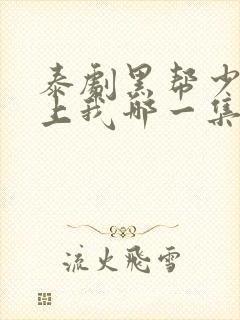 泰劇黑帮少
上我哪一集
流火飛雪